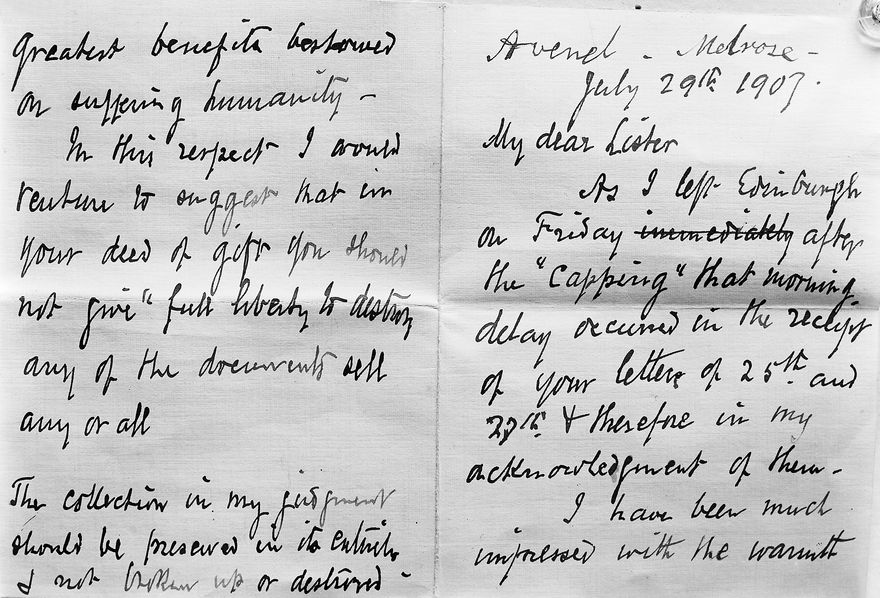 greatest benefits bestowed
on suffering humanity –
In this respect I would
venture to suggest that in
your deed of gift you should
not give "full liberty to destroy
any of the documents sell
any or all
The collection in my judgment
should be preserved in its entirity
& not broken up or destroyed –
Avenel – Melrose –
July 29th 1907.
My dear Lister
As I left Edinburgh
on Friday immediately after
the "Capping" that morning
delay occurred in the receipt
of your letters of 25th and
27th & therefore in my
acknowledgment of them –
I have been much
impressed with the warmth